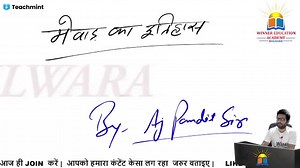 Teachmint
मेवाड़ का इतिहास
WINNER EDUCATION
ACADEMY
LWARA
By- Aj Pandit Sir
आज ही JOIN करें | आपको हमारा कंटेंट कैसा लग रहा जरूर बताइए | LI